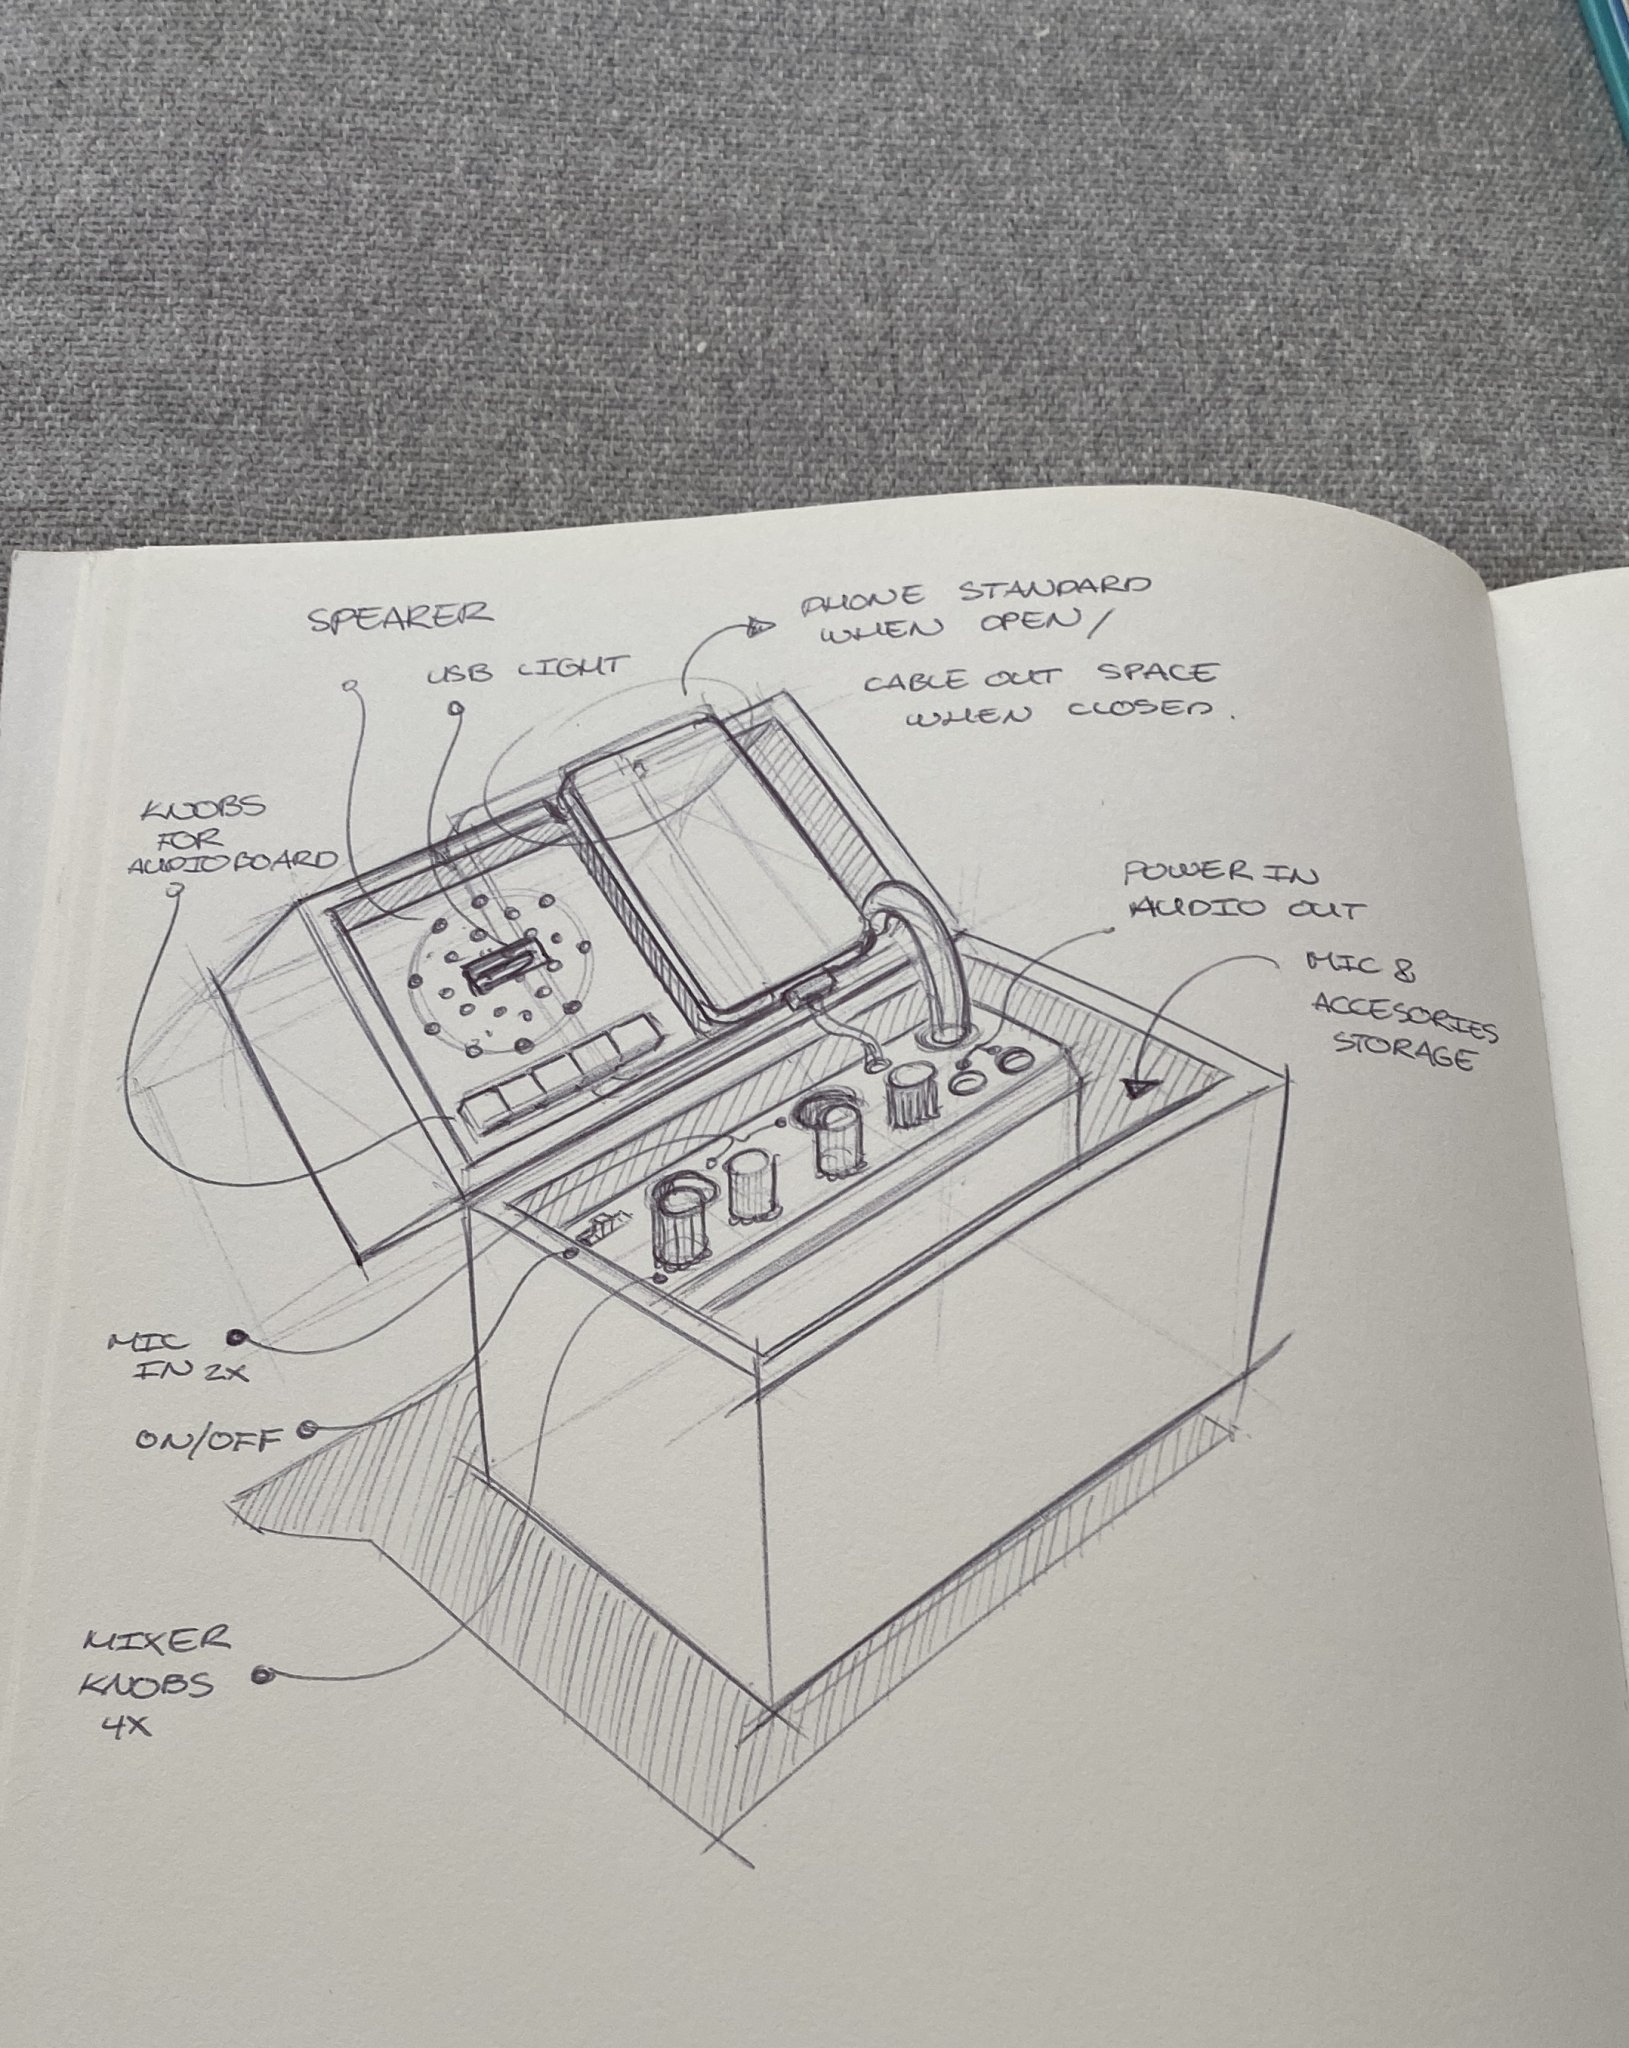 SPEAKER
USB LIGHT
PHONE STANDARD
WHEN OPEN/
CABLE OUT SPACE
WHEN CLOSED.
KNOBS
FOR
AUDIOBOARD
POWER IN
AUDIO OUT
MIC &
ACCESORIES
STORAGE
MIC
IN 2X
ON/OFF
MIXER
KNOBS
4X